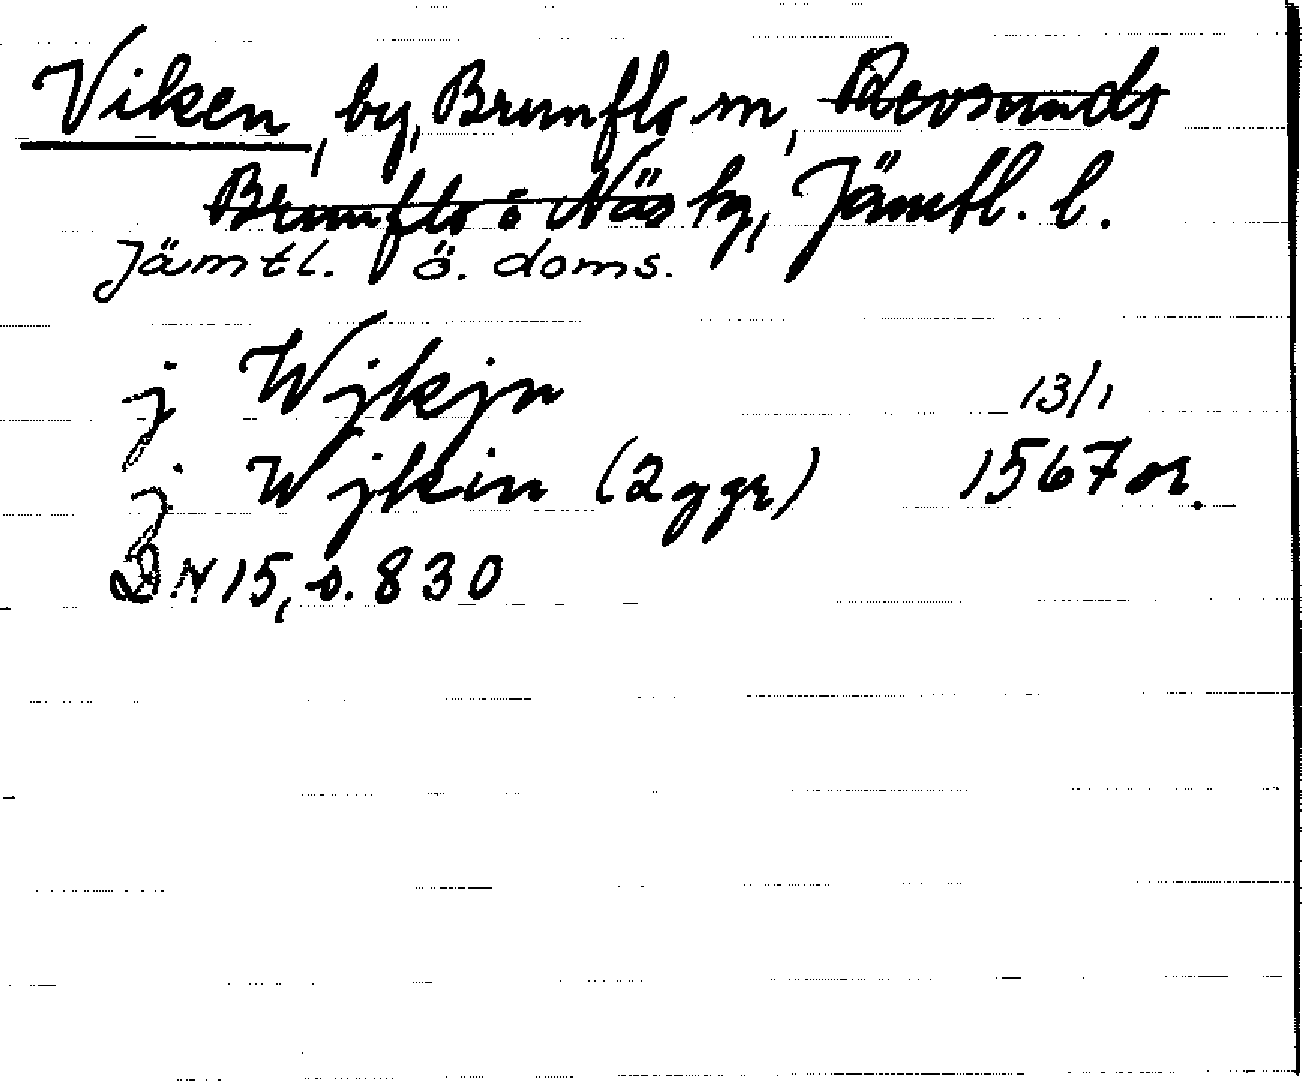 Viken, by, Brunflo sn, Revsunds
Brunflo o Näs tg, Jämtl. l.
Jämtl. ö. doms.
j Wjkjn 13/1
j Wjkin (2 ggr) 1567 or.
DN 15, s. 830